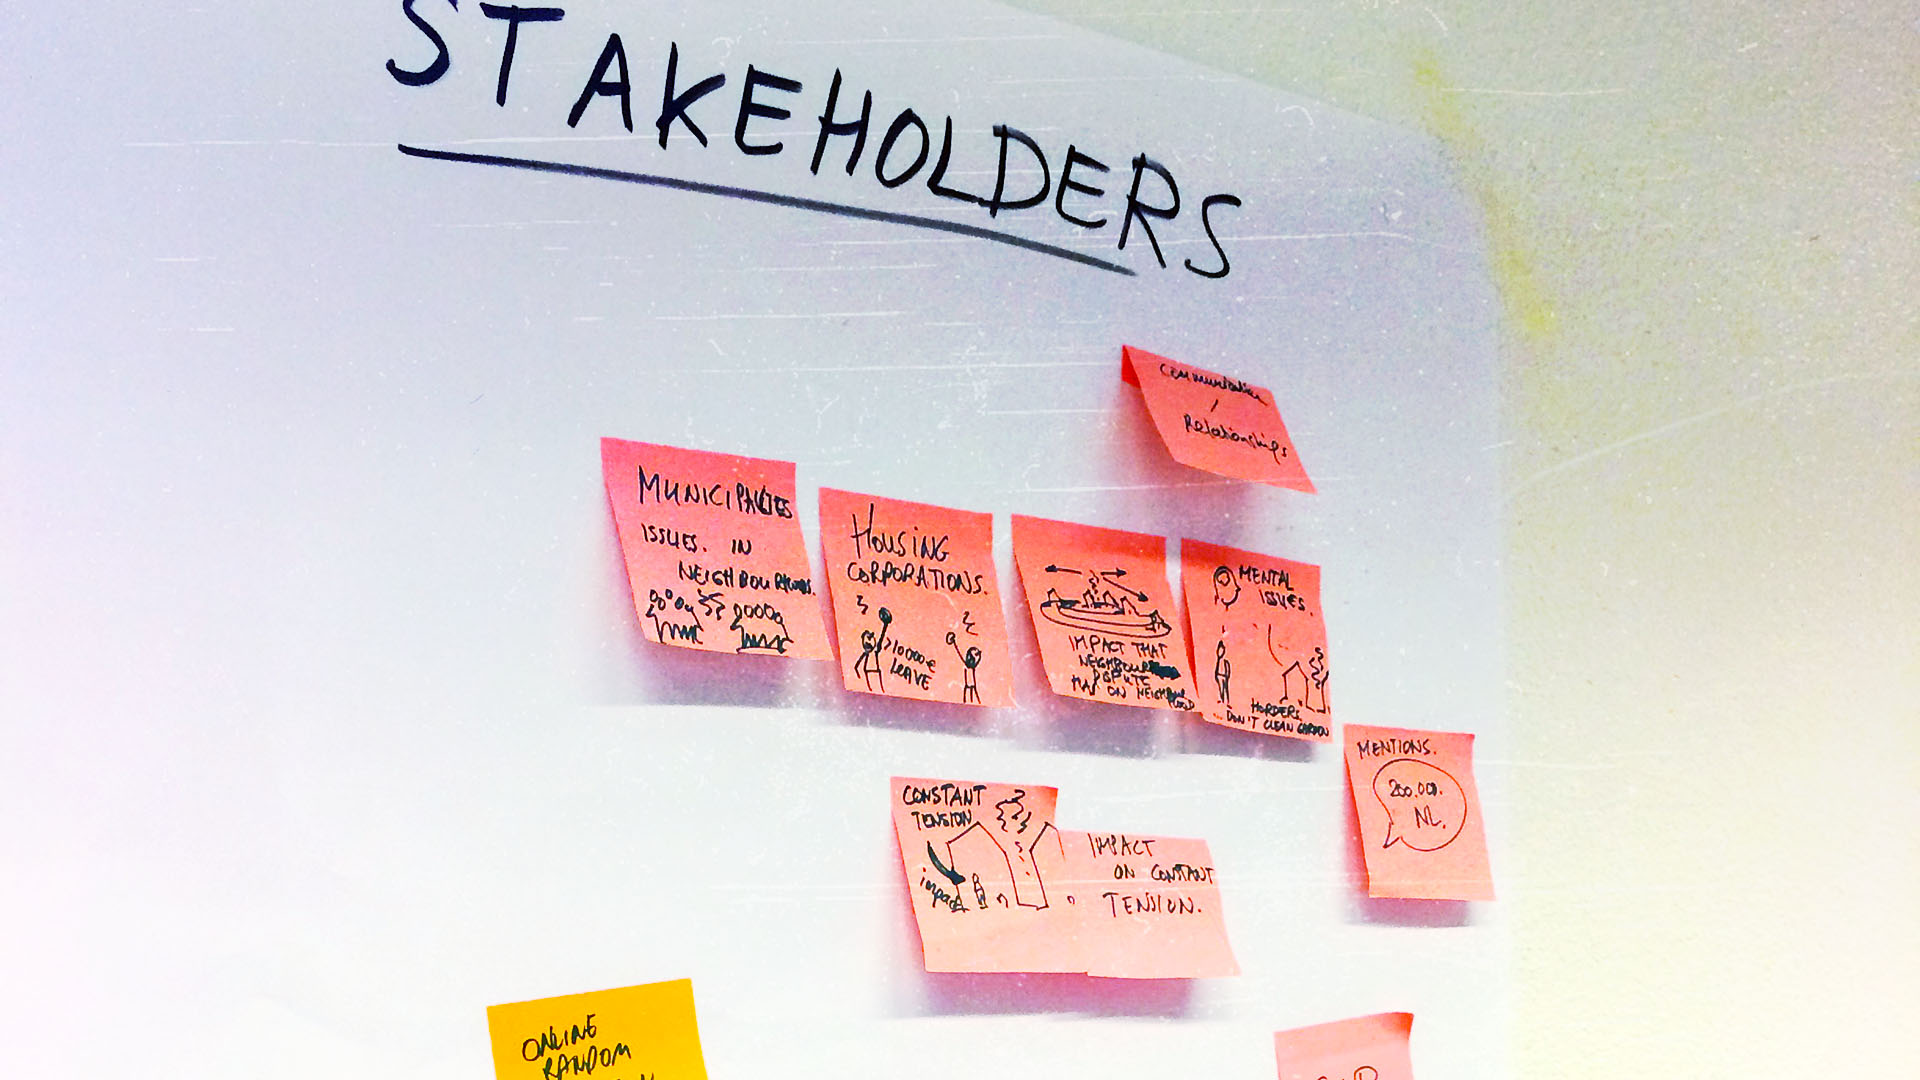 STAKEHOLDERS
Communication
/
Relationships
MUNICIPALITIES
ISSUES. IN
NEIGHBOURHOODS.
HOUSING
CORPORATIONS.
>10000€
LEAVE
IMPACT THAT
NEIGHBOUR
DISPUTE
HAS ON NEIGHBOURHOOD
MENTAL
ISSUES.
HORDERS.
... DON'T CLEAN GARDEN
MENTIONS.
200.000.
NL.
CONSTANT
TENSION
impact
IMPACT
ON CONSTANT
TENSION.
ONLINE
RANDOM